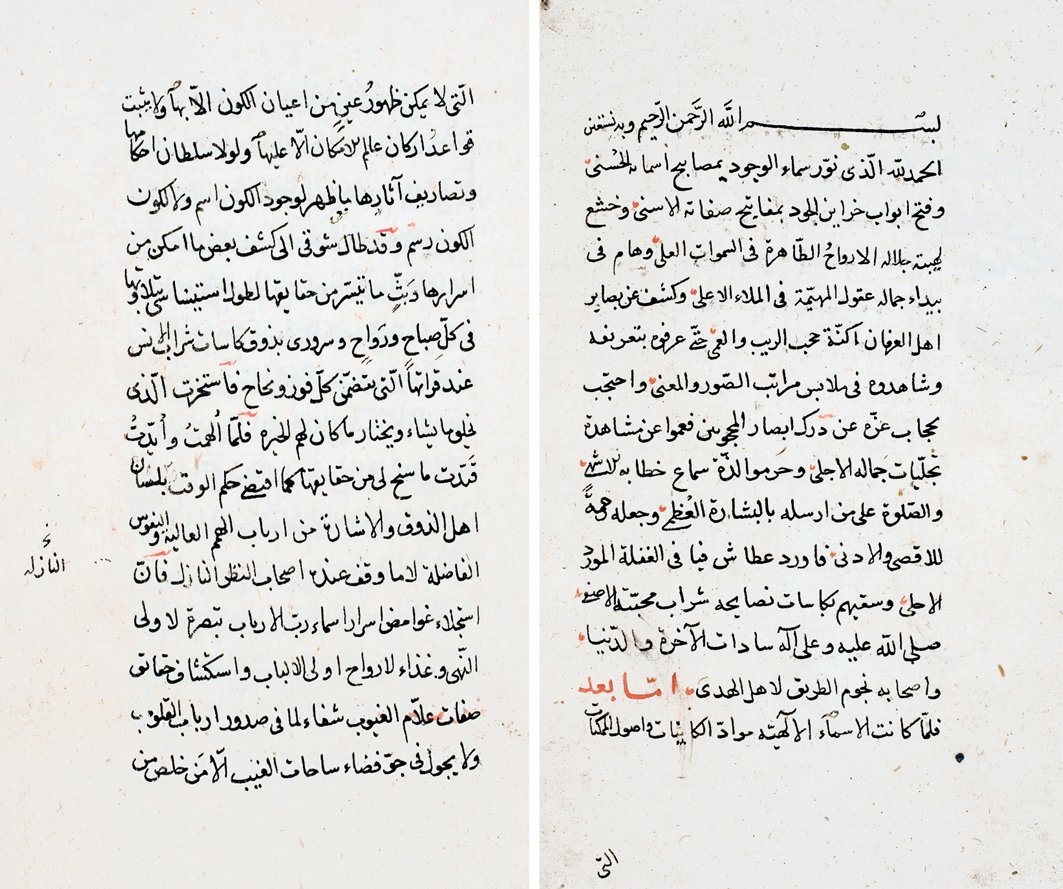 بسم الله الرَّحمن الرّحيم وبه نستعين
الحمد لله الّذى نوّر سماء الوجود بمصابيح اسمائه الحُسنىٰ
وفتح ابواب خزاين الجود بمفاتيح صفاته الاسنىٰ وخشع
لهيبة جلاله الارواحُ الطّاهرة فى السموات العلى وهام فى
بيداء جماله عقول المهيّمة فى الملاء الاعلىٰ وكشف عن بصاير
اهل العرفان اكنّة حجب الريب والعمى حتّى عرفوه بتعرفه
وشاهدوه فى ملابس مراتب الصّور والمعنى واحتجب
بحجاب عزّه عن درك ابصار المحجوبين فعموا عن مشاهدة
تجلّيات جماله الاجلىٰ وحرموا لذّة سماع خطابه
والصّلوة على من ارسله بالبشارة العُظمى وجعله رحمةً
للاقصى والادنى فاورد عطاش فيافى الغفلة المورد
الاحلى وسقيهم بكاسات نصايحه شراب محبّته الاصفى
صلى الله عليه وعلى آله سادات الآخرة والدّنيا
واصحابه نجوم الطريق لاهل الهدى امّا بعد
فلمّا كانت الاسماء الالٓهيّه موادّ الكاينات واصول الممكنات
التى
الّتى لا يمكن ظهورُ عينٍ من اعيان الكون الّا بها ولا يثبت
قواعد اركان عالم للامكان الّا عليها ولولا سلطان احكامها
وتصاريف آثارها ما ظهر لوجود الكون اسم ولا لكون
الكون رسم وقد طال شوقى الى كشف بعض ما امكن من
اسرارها وبثِّ ما تيسّر من حقايقها لطول استيناسى بتلاوتها
فى كلّ صباحٍ ورَواحٍ وسرورى بذوق كاسات شراب الانس
عند قراتها الّتى يتضمّن كلّ فوز ونجاح فاستخرت الّذى
يخلق ما يشاء ويختار ما كان لهم الخيرة فلمّا أُلهمتُ وأُيّدتُ
قَيّدت ما سنح لى من حقايقها كما اقتضى حكم الوقت بلسان
اهل الذوق والاشارة من ارباب الهمم العالية والنفوس
الفاضلة لا ما وقف عنده اصحاب النظر النازل فانّ
النازله
استجلاء غوامض اسرار اسماء ربّ الارباب تبصرة لاولى
النّهى وغذاء لارواح اولى الالباب واستكشاف حقائق
صفات علّام الغيوب شفاء لما فى صدور ارباب القلوب
ولا يجول فى جوّ فضاء ساحات الغيب الّا مَن خلص من